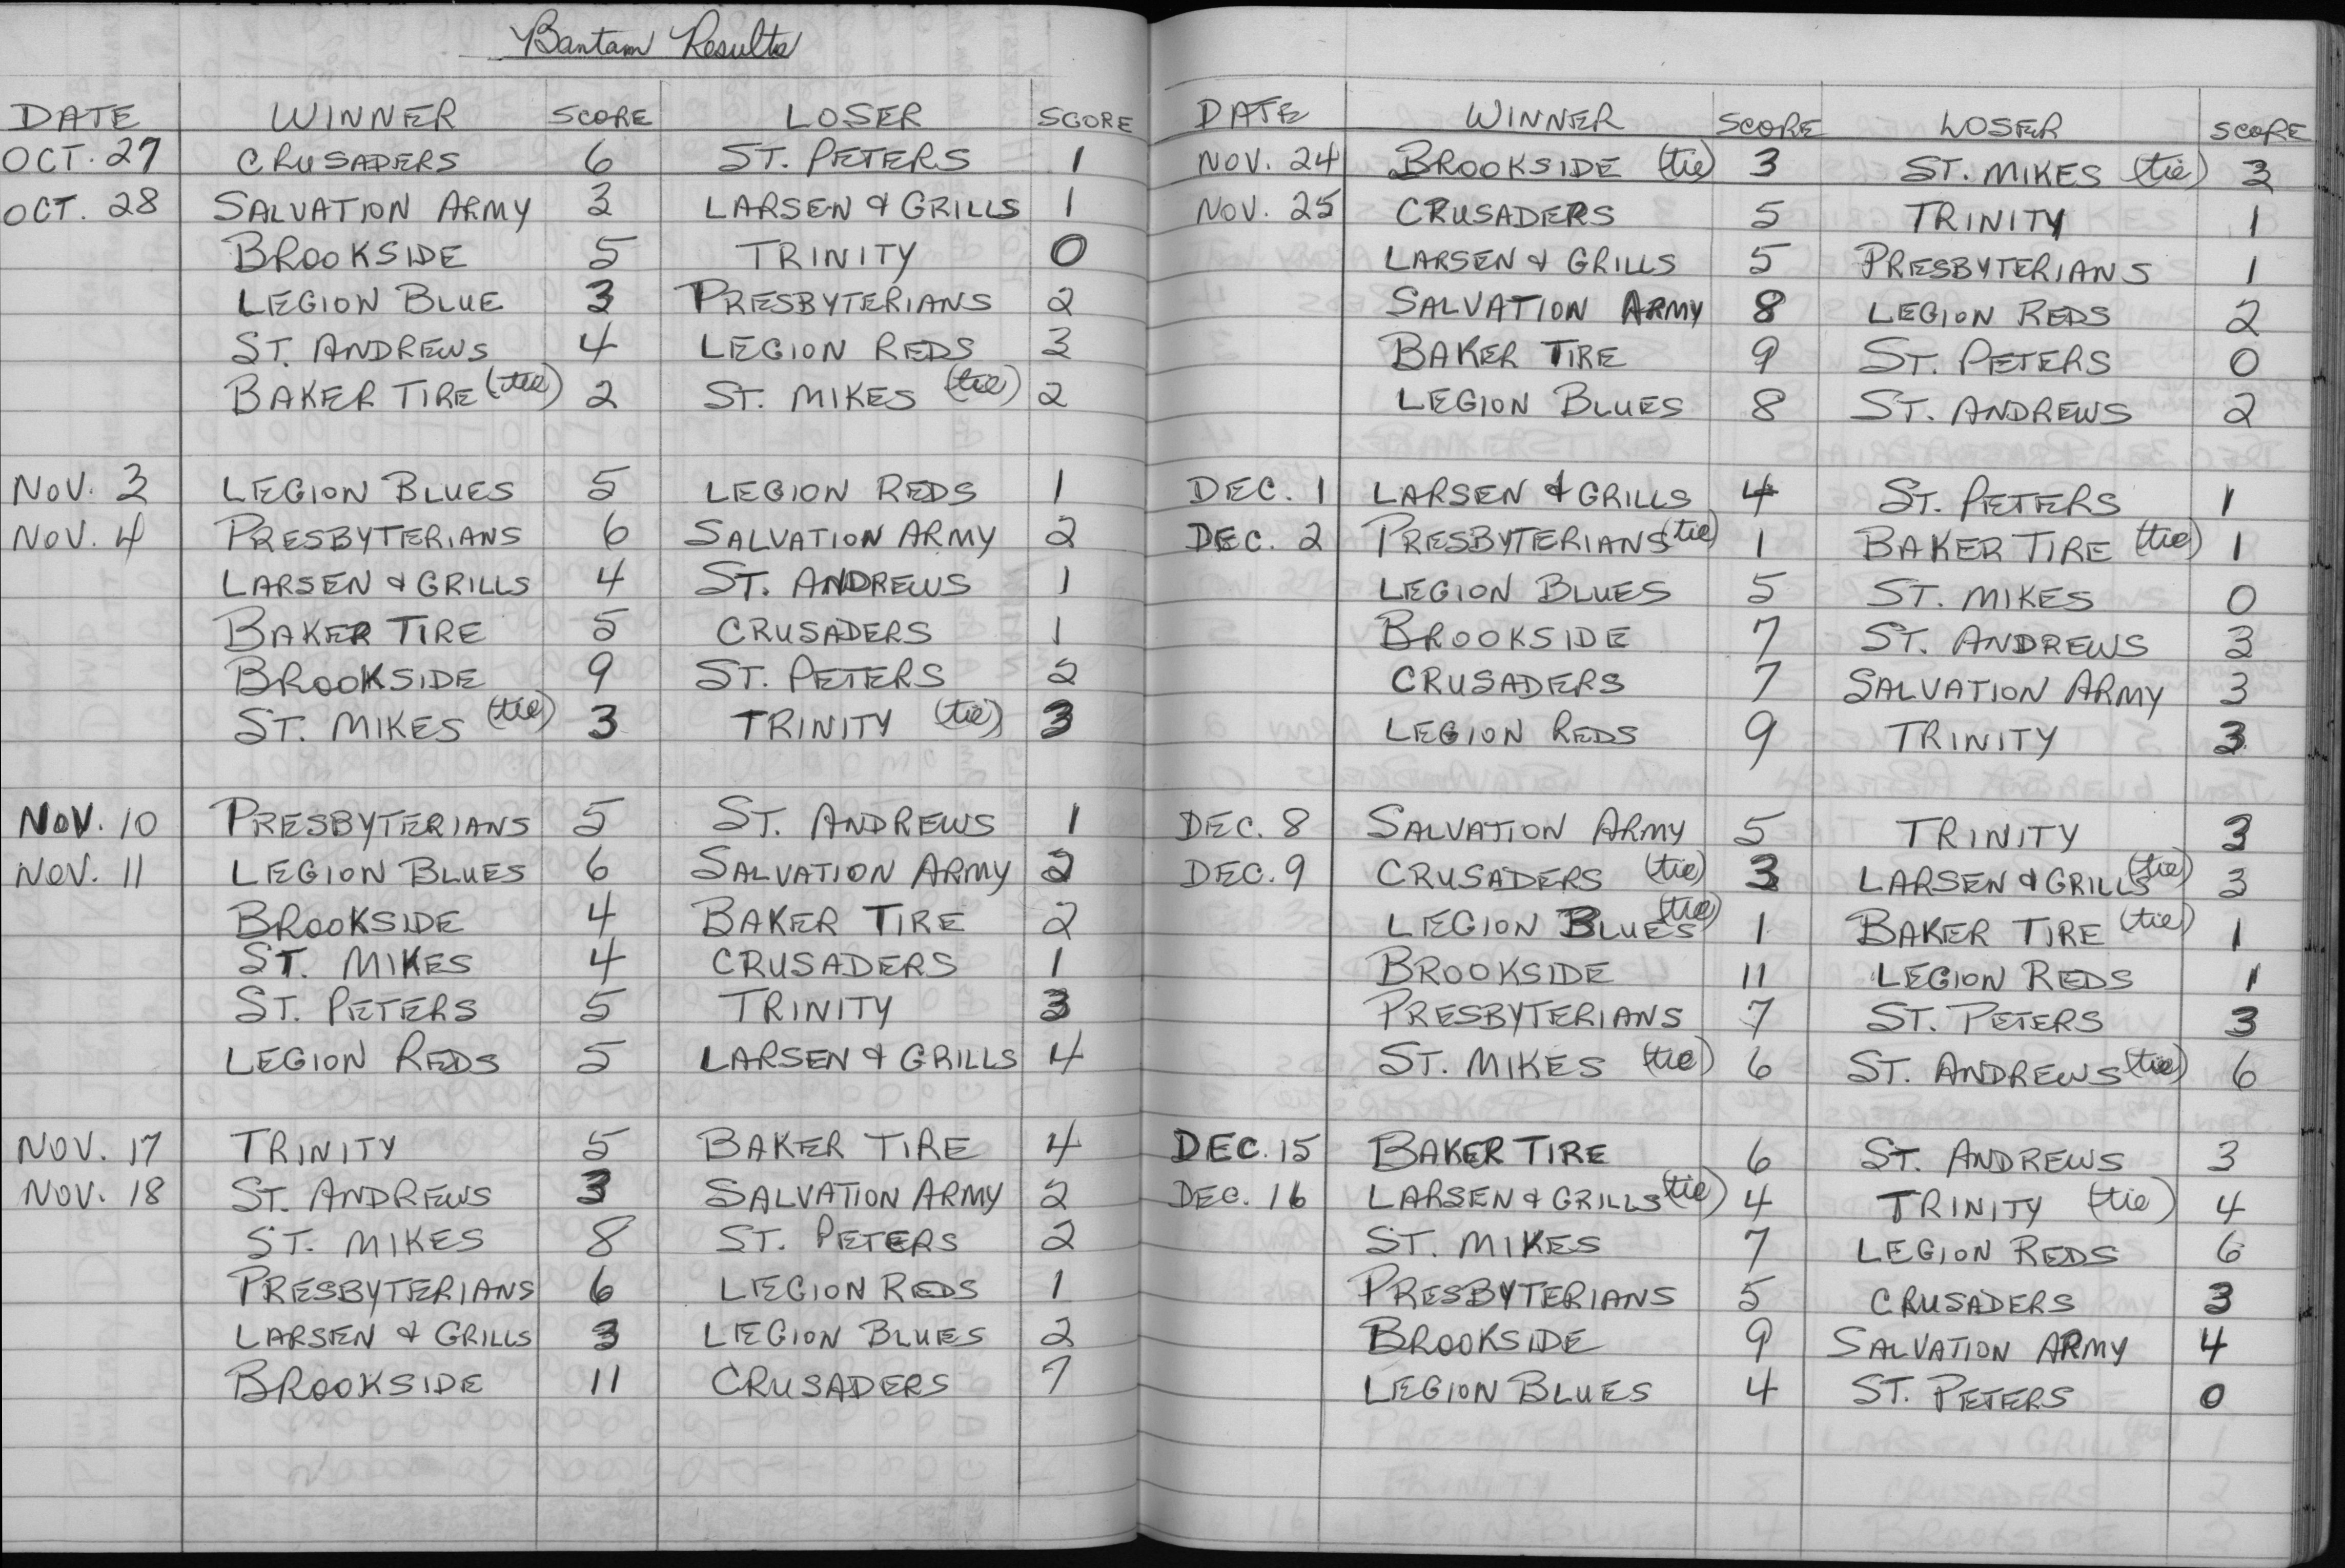 Bantam Results
DATE WINNER SCORE LOSER SCORE
OCT. 27 CRUSADERS 6 ST. PETERS 1
OCT. 28 SALVATION ARMY 3 LARSEN & GRILLS 1
BROOKSIDE 5 TRINITY 0
LEGION BLUE 3 PRESBYTERIANS 2
ST. ANDREWS 4 LEGION REDS 3
BAKER TIRE (tie) 2 ST. MIKES (tie) 2
NOV. 3 LEGION BLUES 5 LEGION REDS 1
NOV. 4 PRESBYTERIANS 6 SALVATION ARMY 2
LARSEN & GRILLS 4 ST. ANDREWS 1
BAKER TIRE 5 CRUSADERS 1
BROOKSIDE 9 ST. PETERS 2
ST. MIKES (tie) 3 TRINITY (tie) 3
NOV. 10 PRESBYTERIANS 5 ST. ANDREWS 1
NOV. 11 LEGION BLUES 6 SALVATION ARMY 2
BROOKSIDE 4 BAKER TIRE 2
ST. MIKES 4 CRUSADERS 1
ST. PETERS 5 TRINITY 3
LEGION REDS 5 LARSEN & GRILLS 4
NOV. 17 TRINITY 5 BAKER TIRE 4
NOV. 18 ST. ANDREWS 3 SALVATION ARMY 2
ST. MIKES 8 ST. PETERS 2
PRESBYTERIANS 6 LEGION REDS 1
LARSEN & GRILLS 3 LEGION BLUES 2
BROOKSIDE 11 CRUSADERS 7
DATE WINNER SCORE LOSER SCORE
NOV. 24 BROOKSIDE (tie) 3 ST. MIKES (tie) 3
NOV. 25 CRUSADERS 5 TRINITY 1
LARSEN & GRILLS 5 PRESBYTERIANS 1
SALVATION ARMY 8 LEGION REDS 2
BAKER TIRE 9 ST. PETERS 0
LEGION BLUES 8 ST. ANDREWS 2
DEC. 1 LARSEN & GRILLS 4 ST. PETERS 1
DEC. 2 PRESBYTERIANS (tie) 1 BAKER TIRE (tie) 1
LEGION BLUES 5 ST. MIKES 0
BROOKSIDE 7 ST. ANDREWS 3
CRUSADERS 7 SALVATION ARMY 3
LEGION REDS 9 TRINITY 3
DEC. 8 SALVATION ARMY 5 TRINITY 3
DEC. 9 CRUSADERS (tie) 3 LARSEN & GRILLS (tie) 3
LEGION BLUES (tie) 1 BAKER TIRE (tie) 1
BROOKSIDE 11 LEGION REDS 1
PRESBYTERIANS 7 ST. PETERS 3
ST. MIKES (tie) 6 ST. ANDREWS (tie) 6
DEC. 15 BAKER TIRE 6 ST. ANDREWS 3
DEC. 16 LARSEN & GRILLS (tie) 4 TRINITY (tie) 4
ST. MIKES 7 LEGION REDS 6
PRESBYTERIANS 5 CRUSADERS 3
BROOKSIDE 9 SALVATION ARMY 4
LEGION BLUES 4 ST. PETERS 0